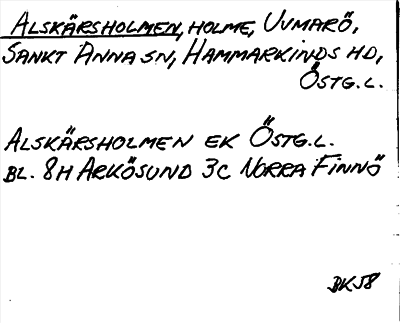 ALSKÄRSHOLMEN, HOLME, UVMARÖ,
SANKT ANNA SN, HAMMARKINDS HD,
ÖSTG.L.
ALSKÄRSHOLMEN EK ÖSTG.L.
BL. 8H ARKÖSUND 3C NORRA FINNÖ
BKJ8